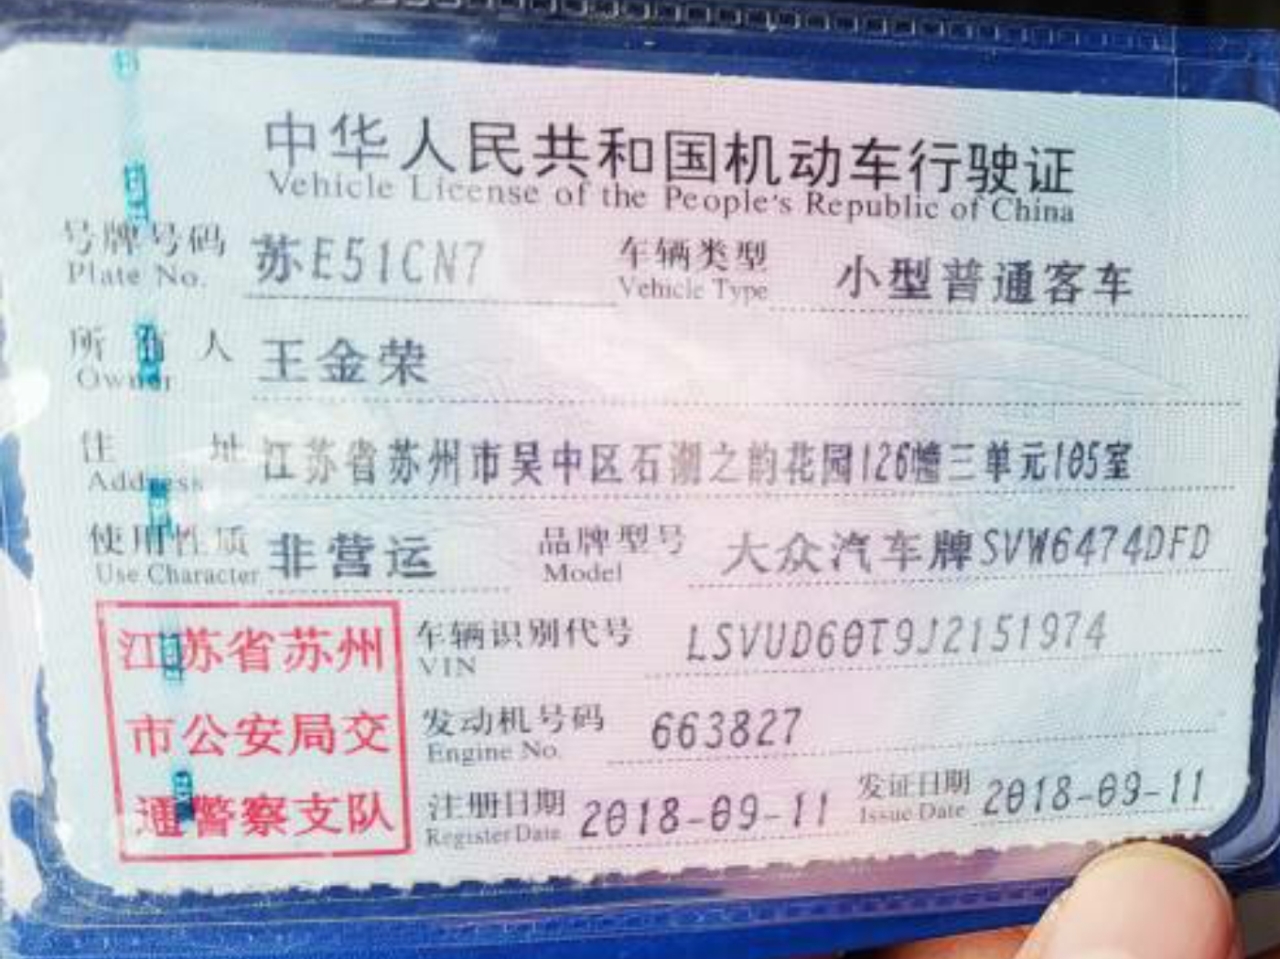 中华人民共和国机动车行驶证
Vehicle License of the People's Republic of China
号牌号码 苏E51CN7 车辆类型 小型普通客车
Plate No. Vehicle Type
所有人 王金荣
Owner
住址 江苏省苏州市吴中区石湖之韵花园126幢三单元105室
Address
使用性质 非营运 品牌型号 大众汽车牌SVW6474DFD
Use Character Model
江苏省苏州
市公安局交
通警察支队
车辆识别代号 LSVUD60T9J2151974
VIN
发动机号码 663827
Engine No.
注册日期 2018-09-11 发证日期 2018-09-11
Register Date Issue Date